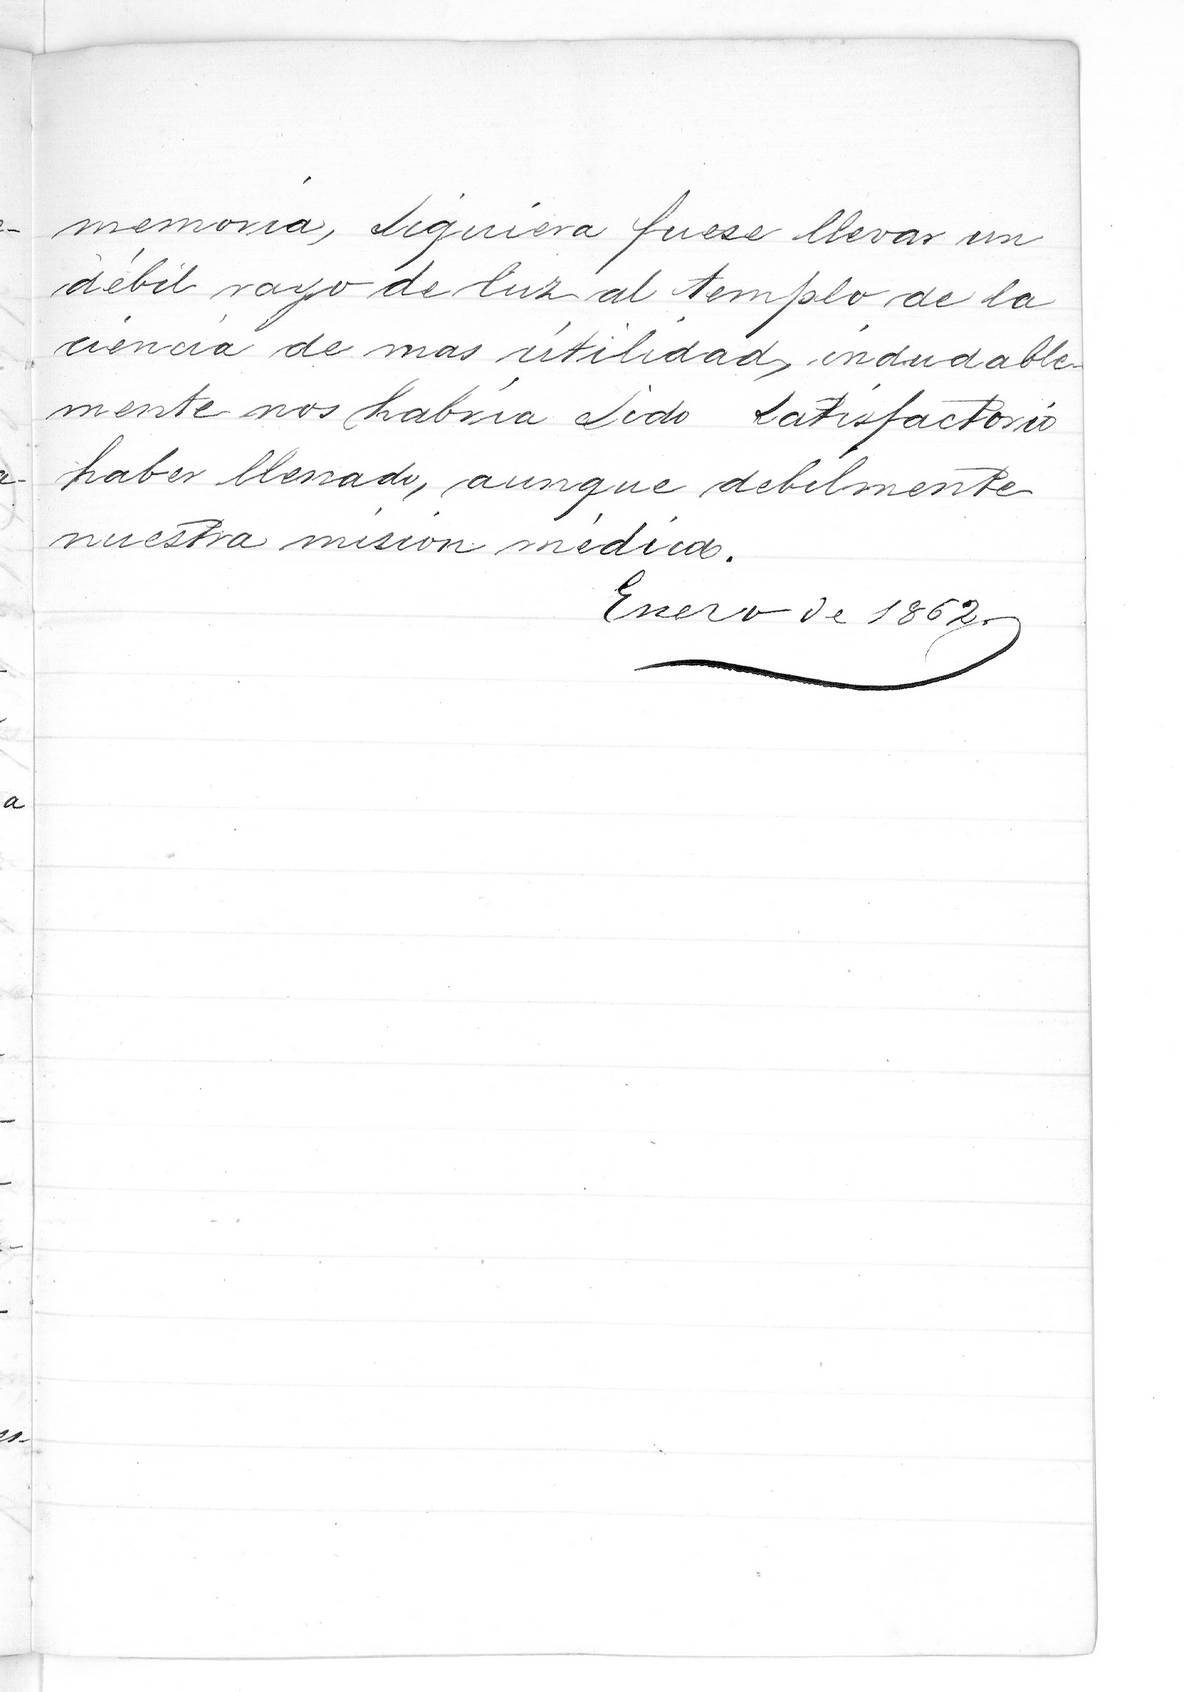 memoria, siquiera fuese llevar un
débil rayo de luz al templo de la
ciencia de mas utilidad, indudable-
mente nos habria sido satisfactorio
haber llenado, aunque debilmente
nuestra mision médica.
Enero de 1862.